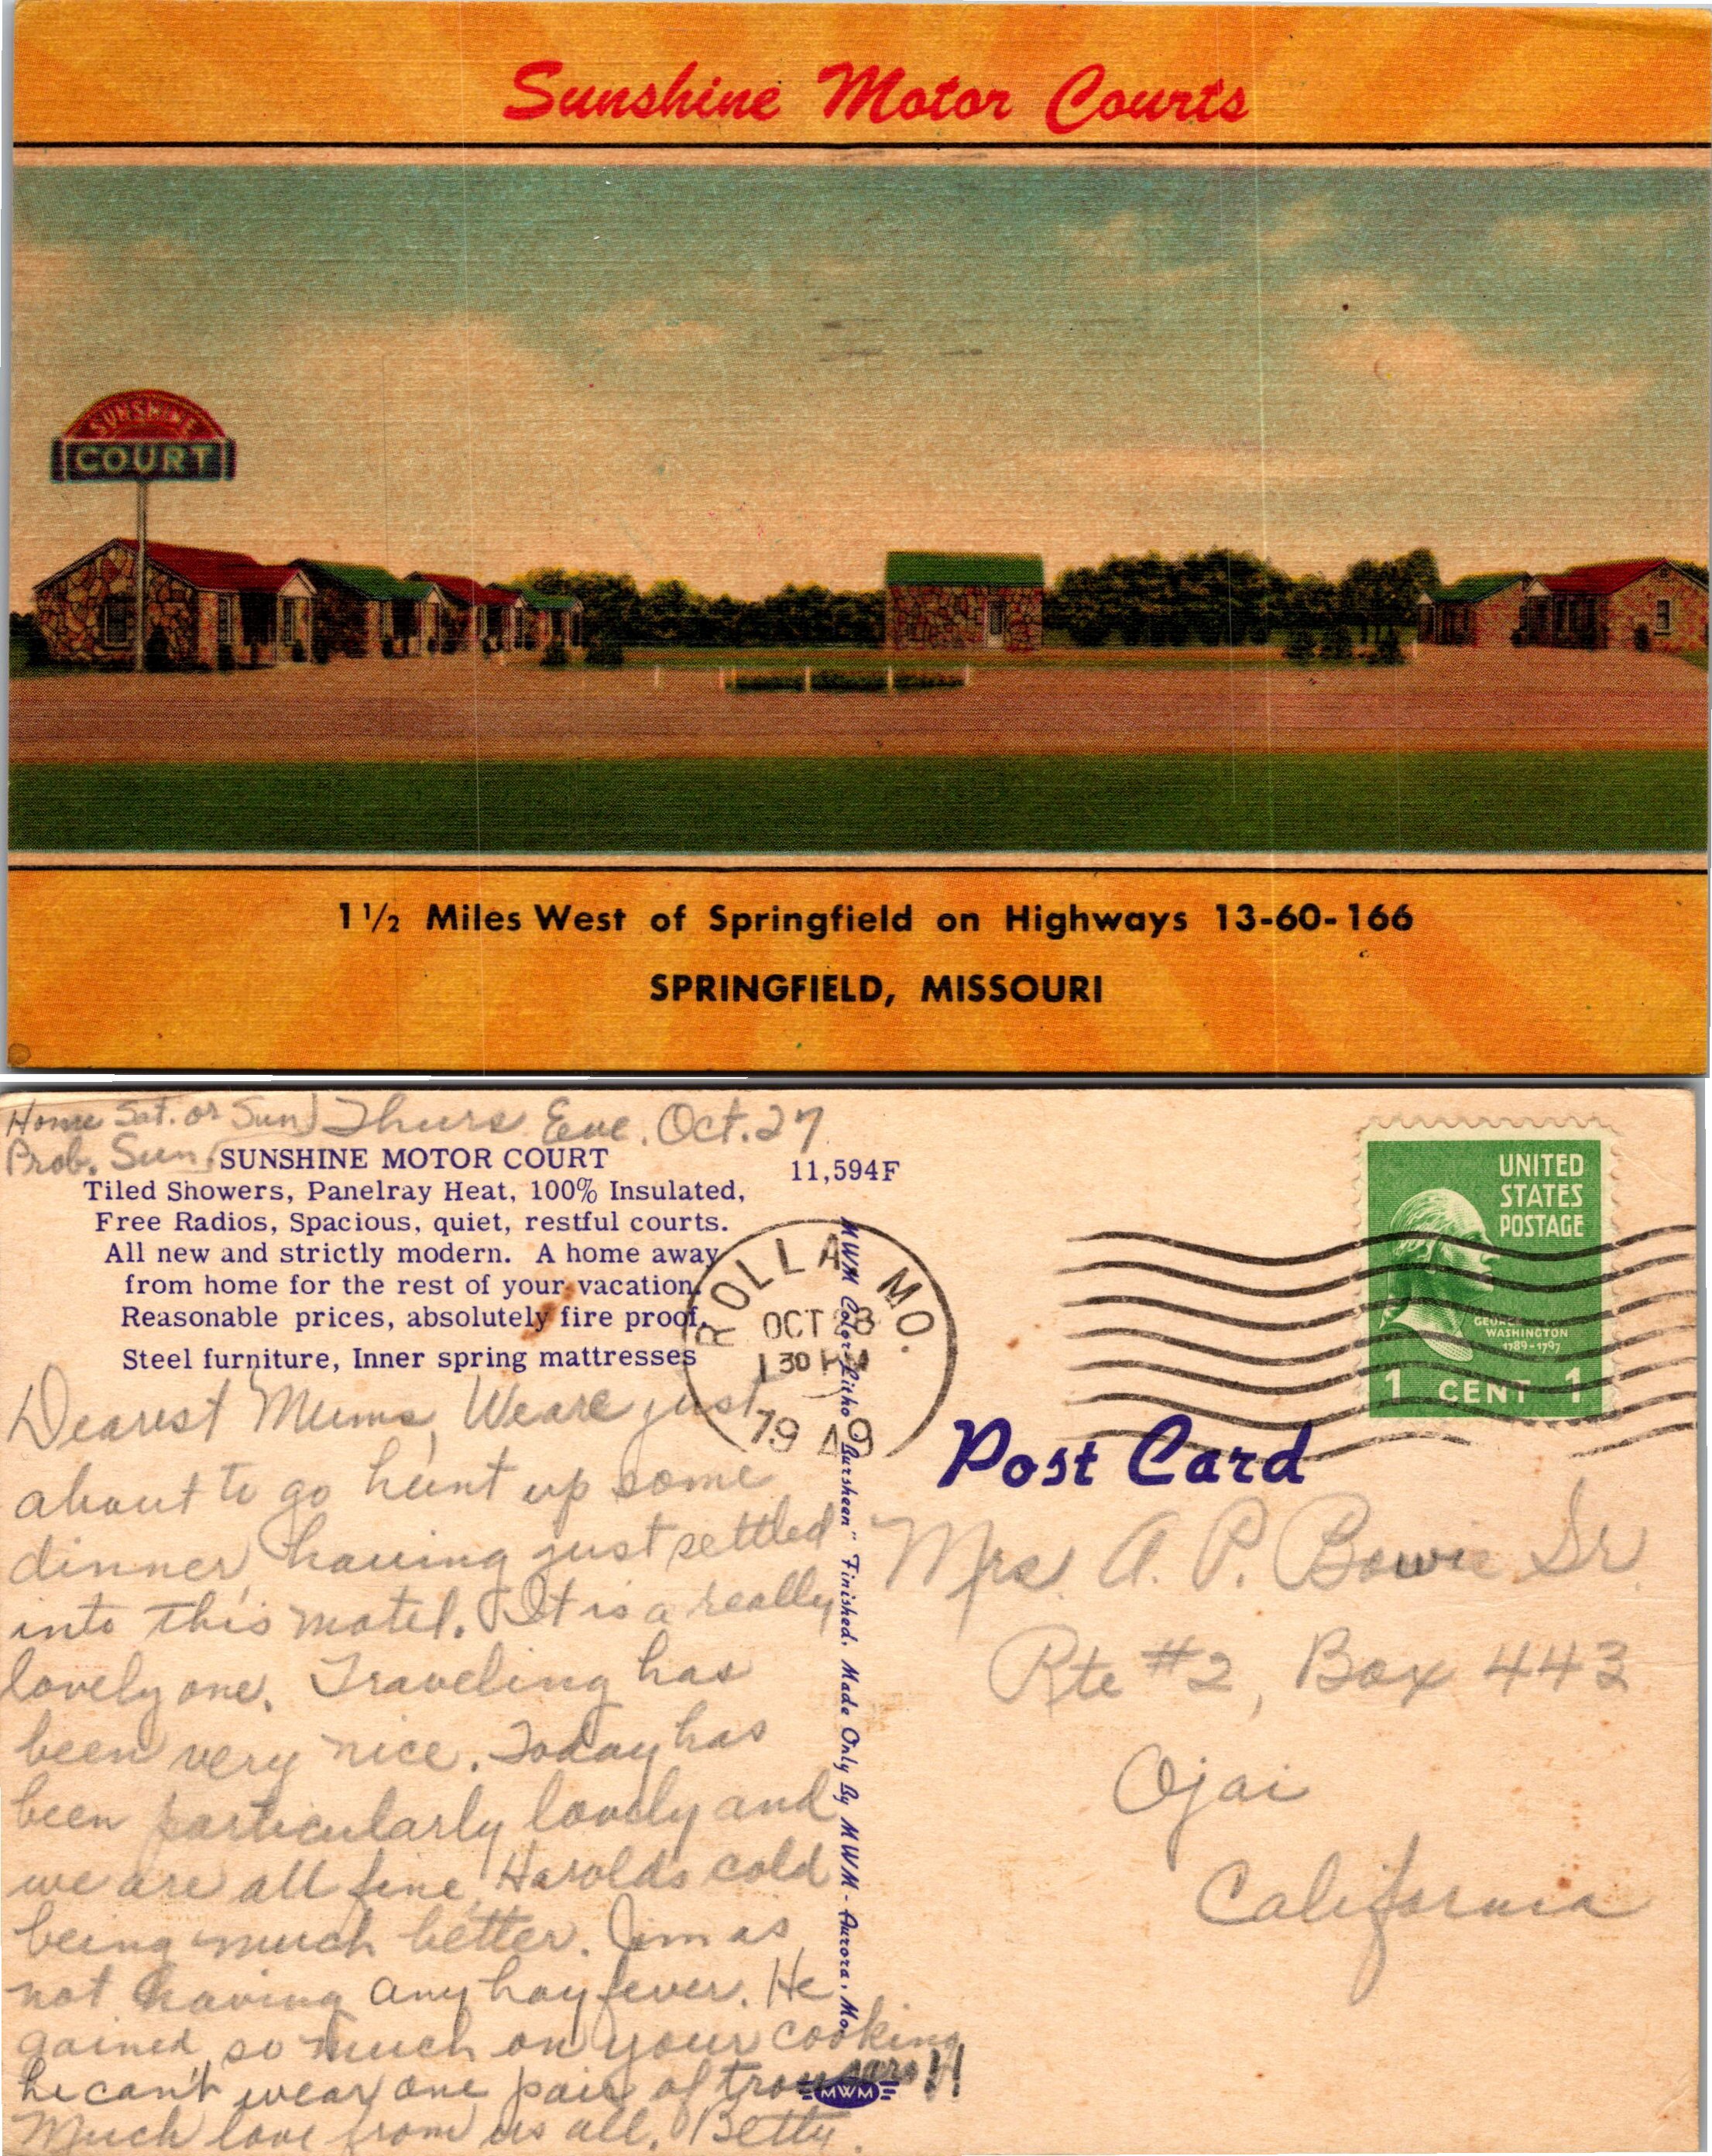 Sunshine Motor Courts
SUNSHINE
COURT
1 1/2 Miles West of Springfield on Highways 13-60-166
SPRINGFIELD, MISSOURI
Home Sat. or Sun) Thurs Eve. Oct. 27
Prob. Sun.
SUNSHINE MOTOR COURT
11,594F
Tiled Showers, Panelray Heat, 100% Insulated,
Free Radios, Spacious, quiet, restful courts.
All new and strictly modern. A home away
from home for the rest of your vacation.
Reasonable prices, absolutely fire proof.
Steel furniture, Inner spring mattresses
Dearest Mums, We are just
about to go hunt up some
dinner, having just settled
into this motel. It is a really
lovely one. Traveling has
been very nice. Today has
been particularly lovely and
we are all fine, Harolds cold
being much better. Jim as
not having any hay fever. He
gained so much on your cooking
he can't wear one pair of trousers!!
Much love from us all. Betty.
MWM Color-Litho "Burshean" Finished. Made Only By MWM - Aurora, Mo.
MWM
ROLLA MO.
OCT 28
1 30 PM
1949
UNITED
STATES
POSTAGE
GEORGE
WASHINGTON
1789-1797
1 CENT 1
Post Card
Mrs. A. P. Bowie Sr.
Rte #2, Box 443
Ojai
California